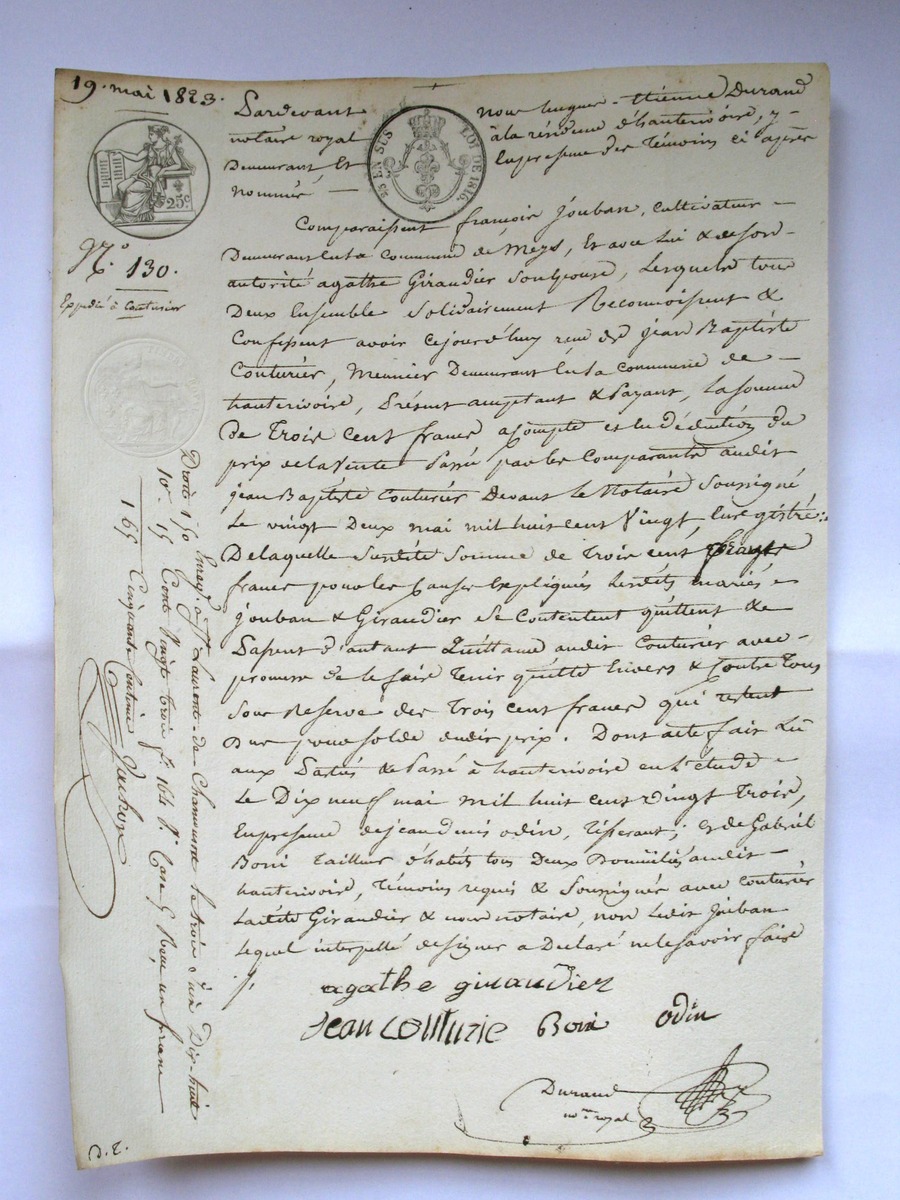 19. mai 1823.
25c
25 EN SUS
LOI DE 1816.
Pardevant nous hugues - Etienne Durand
notaire royal à la résidence d'hauterivoire, y
Demeurant, Et En présence des Témoins ci après
nommés —
No. 130.
Expédié à Couturier
Comparaissent françois Jouban, cultivateur -
Demeurant en la Commune de Meys, Et avec lui & de son
autorité agathe Giraudier son Epouse, Lesquels tous
Deux Ensemble solidairement Reconnoissent &
Confessent avoir cejourd'huy reçu de Jean Baptiste
Couturier, Meunier Demeurant en la commune de -
hauterivoire, Présent acceptant & Payant, La somme
De Trois cent francs acompte et en déduction du
prix de la Vente Passée par les Comparants audit
jean Baptiste Couturier Devant le Notaire soussigné
Le vingt Deux mai mil huit cent Vingt, Enregistré:
De laquelle susdite somme de Trois cent
francs pour les causes Expliquées Lesdits mariés -
Jouban & Giraudier se Contentent quittent &
Passent d'autant Quittance audit Couturier avec -
promesse de le faire Tenir quitte Envers & Contre Tous
sous Reserve des Trois cent francs qui restent
Dus pour solde dudit prix. Dont acte fait Lu
aux Parties & Passé à hauterivoire en L'étude -
Le Dix neuf mai mil huit cent Vingt Trois,
En présence de jean denis odin, Tisserant; Et de Gabriel
Boni Tailleur d'habits tous Deux Domiciliés audit -
hauterivoire, Témoins requis & Soussignés avec Couturier
Ladite Giraudier & nous notaire, non Ledit Jouban
Lequel interpellé de signer a Déclaré ne le savoir faire
agathe giraudier
Jean couturie Boni odin
Durand
nore royal
Enregé à St Laurent - de Chamousset le trois Juin Dix-huit
Cent Vingt trois fo. 164 Vo. Case 5 Reçu un franc
Cinquante Centimes
Droits 1 50
10e 15
1 65
D. E.